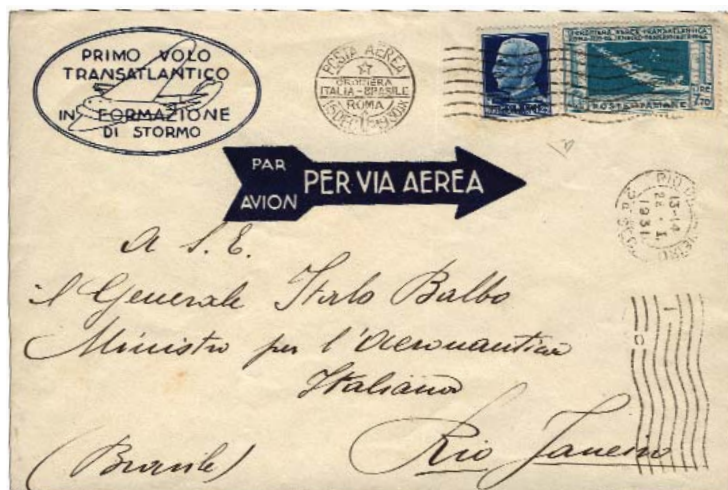 PRIMO VOLO
TRANSATLANTICO
IN FORMAZIONE
DI STORMO
POSTA AEREA
CROCIERA
ITALIA-BRASILE
ROMA
POSTE ITALIANE
PAR
AVION
PER VIA AEREA
13-14
1931
A S. E.
il Generale Italo Balbo
Ministro per l'Aeronautica
Italiana
Rio Janeiro
(Brasile)